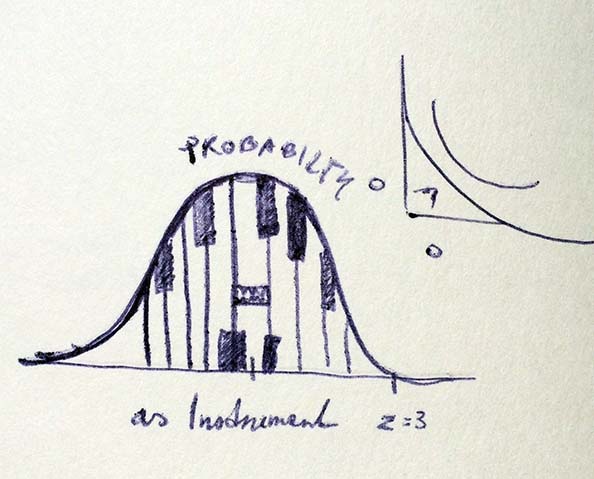 PROBABILTY
0
0
as Instrument z=3